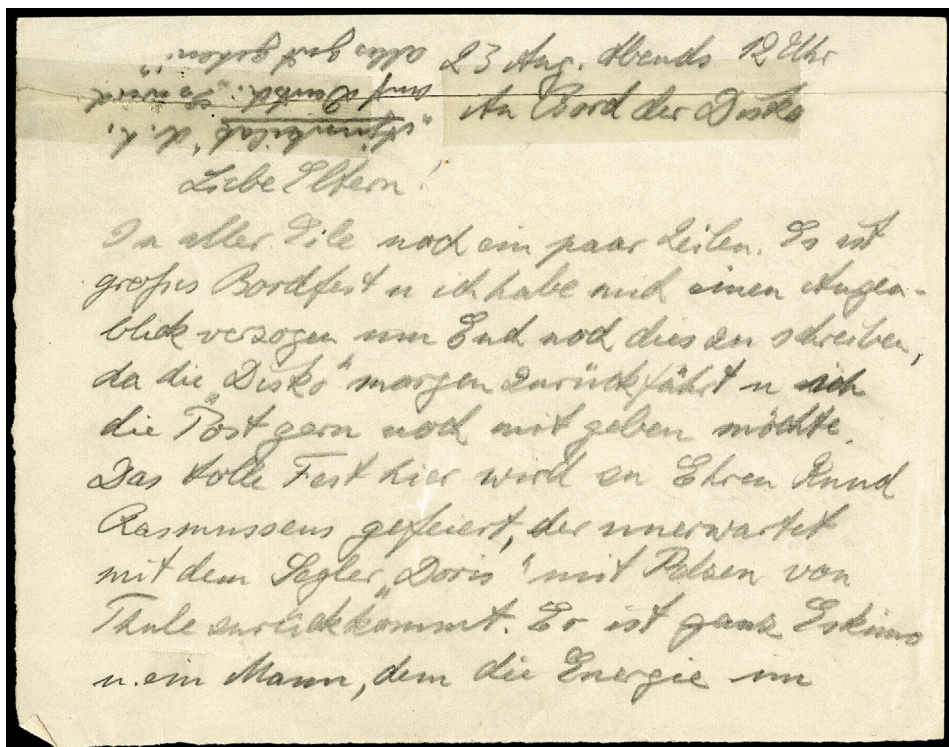 23 Aug. Abends 12 Uhr
An Bord der Disko
Liebe Eltern!
In aller Eile noch ein paar Zeilen. Es ist
großes Bordfest u ich habe mich einen Augen-
blick verzogen um Euch noch dies zu schreiben,
da die „Disko" morgen zurückfährt u ich
die Post gern noch mit geben möchte.
Das tolle Fest hier wird zu Ehren Knud
Rasmussens gefeiert, der unerwartet
mit dem Segler „Doris" mit Pelzen von
Thule zurückkommt. Er ist ganz Eskimo
u. ein Mann, dem die Energie im
d. h.
auf Deutsch: „So wird
alles gut gehen."